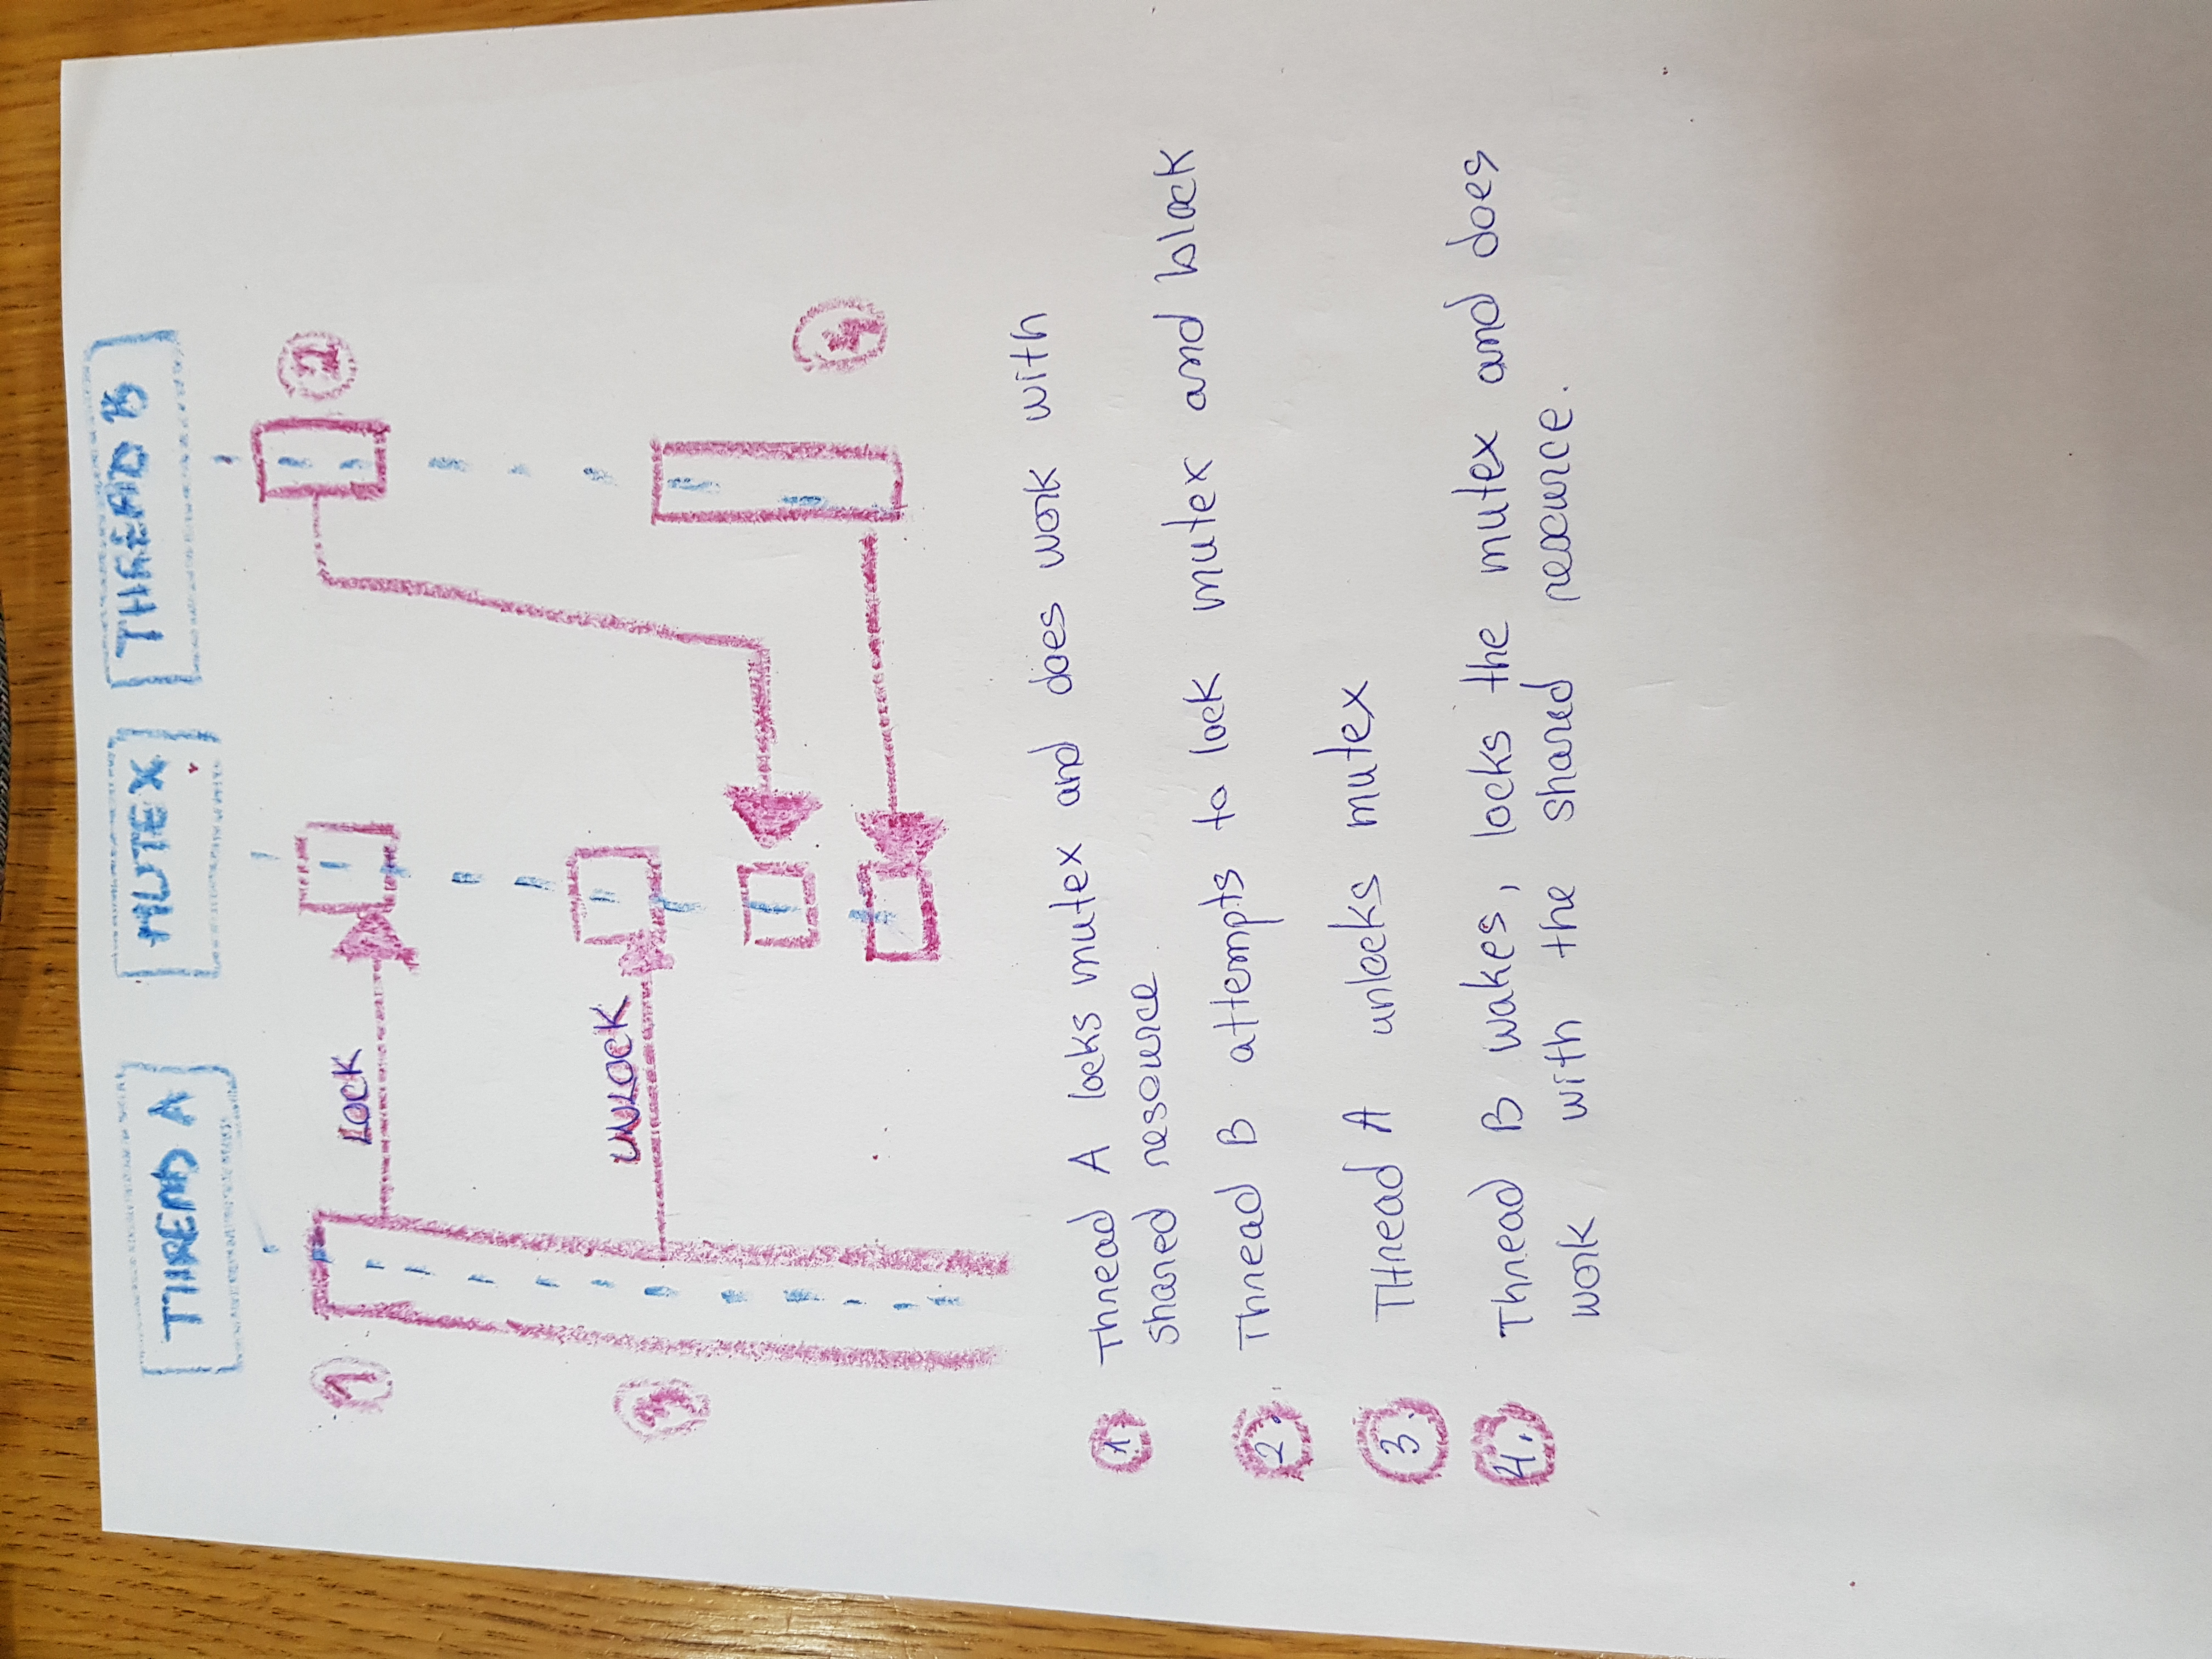 THREAD A
MUTEX
THREAD B
1
LOCK
2
UNLOCK
3
4
1. Thread A locks mutex and does work with
shared resource.
2. Thread B attempts to lock mutex and block
3. THread A unlocks mutex
4. Thread B wakes, locks the mutex and does
work with the shared resource.